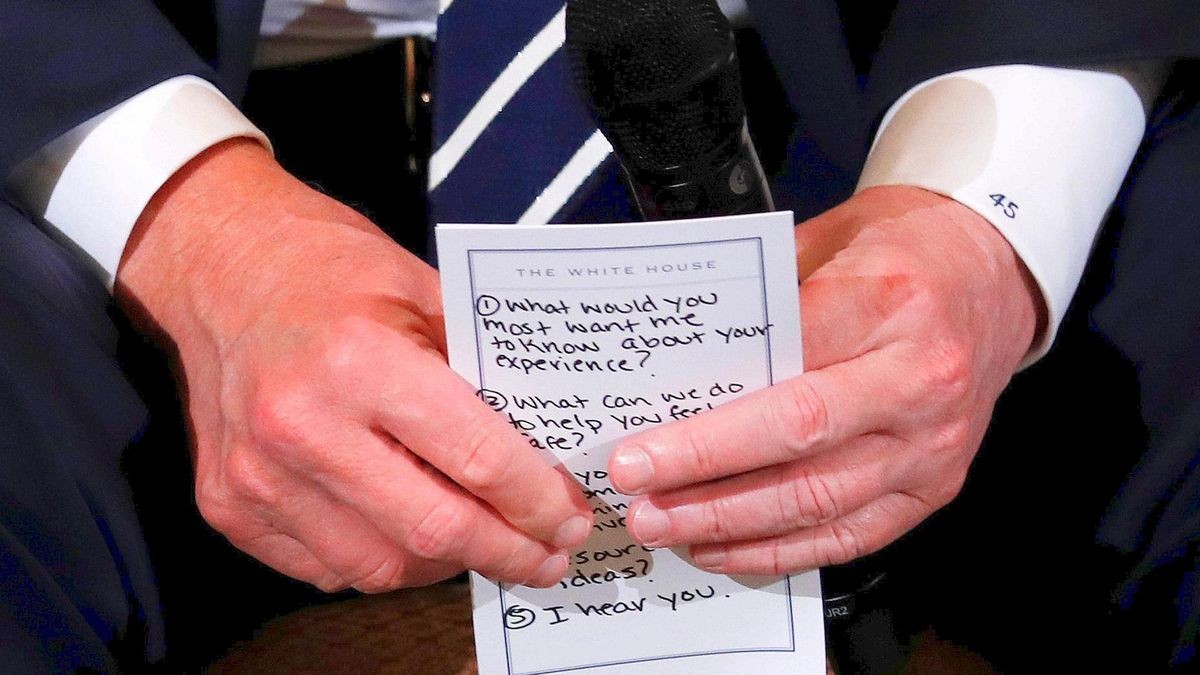 THE WHITE HOUSE
45
① What would you
most want me
to know about your
experience?
② What can we do
to help you feel
safe?
ideas?
⑤ I hear you.
JR2